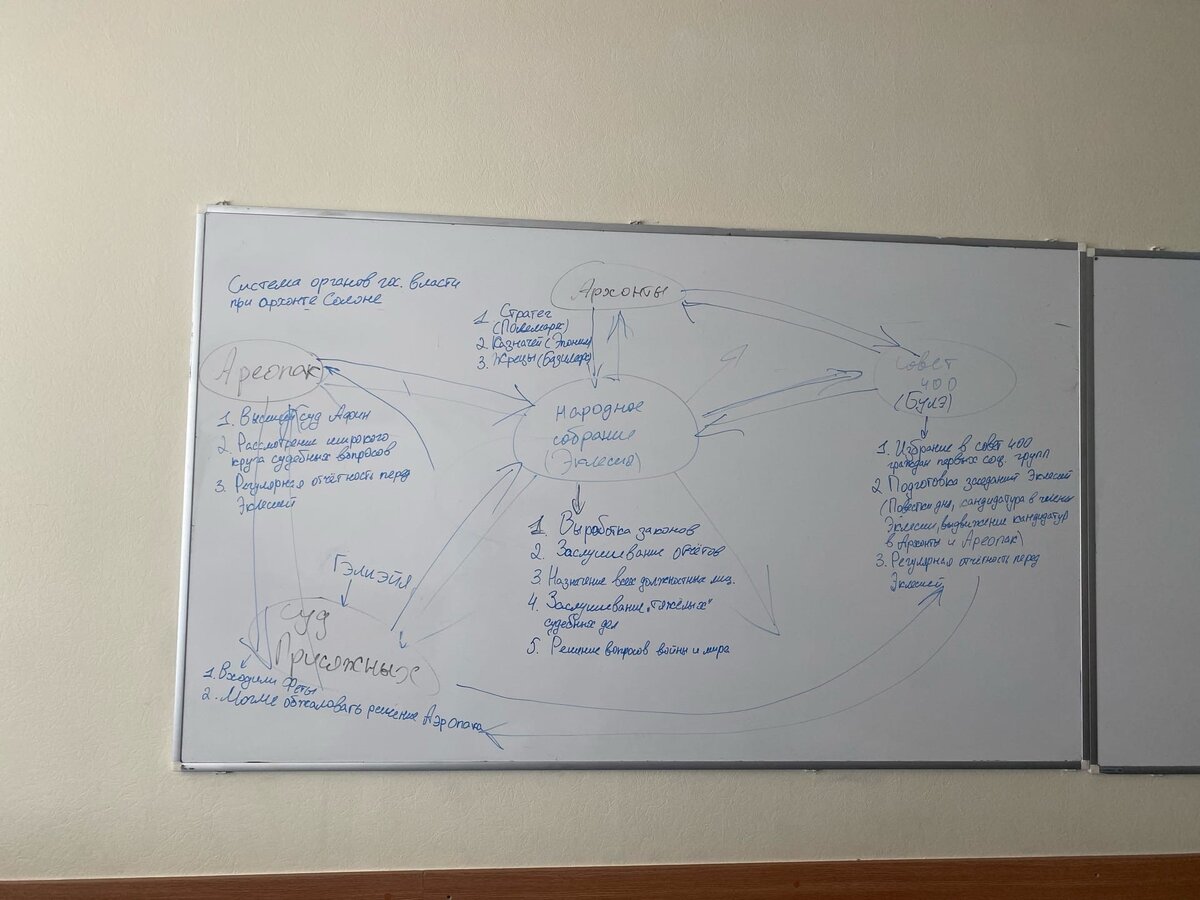 Система органов гос. власти
при архонте Солоне
Архонты
1. Стратег
(Полемарх)
2. Казначей (Эпоним)
3. Жрецы (Базилевс)
Ареопак
1. Высший суд Афин
2. Рассмотрение широкого
круга судебных вопросов
3. Регулярная отчётность перед
Эклесией
Народное
собрание
(Эклесия)
1. Выработка законов
2. Заслушивание отчётов
3. Назначение всех должностных лиц.
4. Заслушивание "тяжёлых"
судебных дел
5. Решение вопросов войны и мира
Совет
400
(Булэ)
1. Избрание в совет 400
граждан первых соц. групп
2 Подготовка заседаний Эклесией
(Повестки дня, кандидатура в члены
Эклесии, выдвижение кандидатур
в Архонты и Ареопак)
3. Регулярная отчётность перед
Эклесией
Гэлиэйя
Суд
Присяжных
1. Входили Феты
2. Могли обжаловать решение Аэропака